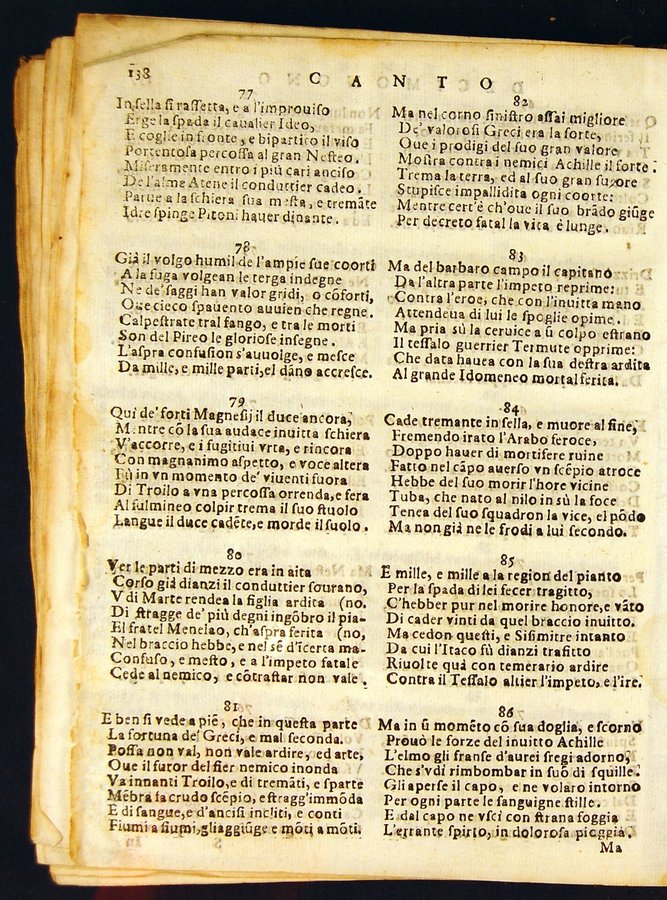 138
C A N T O
77
In sella si rassetta, e a l'improuiso
Erge la spada il caualier Ideo,
E coglie in fronte, e bipartito il viso
Portentosa percossa al gran Nesteo.
Miseramente entro i più cari anciso
De l'alme Atene il conduttier cadeo.
Patue a la schiera sua mesta, e tremãte
Idre spinge Pitoni hauer dinante.
78
Già il volgo humil de l'ampie sue coorti
A la fuga volgean le terga indegne
Ne de' saggi han valor gridi, o cõforti,
Oue cieco spauento auuien che regne.
Calpestrate tral fango, e tra le morti
Son del Pireo le gloriose insegne.
L'aspra confusion s'auuolge, e mesce
Da mille, e mille parti, el dãno accresce.
79
Qui de' forti Magnesij il duce ancora,
Mentre cõ la sua audace inuitta schiera
V'accorre, e i fugitiui vrta, e rincora
Con magnanimo aspetto, e voce altera
Fù in vn momento de' viuenti fuora
Di Troilo a vna percossa orrenda, e fera
Al fulmineo colpir trema il suo stuolo
Langue il duce cadẽte, e morde il suolo.
80
Ver le parti di mezzo era in aita
Corso già dianzi il conduttier sourano,
V di Marte rendea la figlia ardita (no.
Di stragge de' più degni ingõbro il pia-
El fratel Menelao, ch'aspra ferita (no,
Nel braccio hebbe, e nel sẽ d'icerta ma-
Confuso, e mesto, e a l'impeto fatale
Cede al nemico, e cõtrastar non vale.
81
E ben si vede a piẽ, che in questa parte
La fortuna de' Greci, e mal seconda.
Possa non val, non vale ardire, ed arte,
Oue il furor del fier nemico inonda
Va innanti Troilo, e di tremãti, e sparte
Mẽbra fa crudo scẽpio, e stragg'immõda
E di sangue, e d'ancisi incliti, e conti
Fiumi a fiumi, gli aggiũge e mõti a mõti.
82
Ma nel corno sinistro assai migliore
De' valorosi Greci era la sorte,
Oue i prodigi del suo gran valore
Mostra contra i nemici Achille il forte.
Trema la terra, ed al suo gran furore
Stupisce impallidita ogni coorte:
Mentre cert'è ch'oue il suo brãdo giũge
Per decreto fatal la vita è lunge.
83
Ma del barbaro campo il capitano
Da l'altra parte l'impeto reprime:
Contra l'eroe, che con l'inuitta mano
Attendeua di lui le spoglie opime.
Ma pria sù la ceruice a ũ colpo estrano
Il tessalo guerrier Termute opprime:
Che data hauea con la sua destra ardita
Al grande Idomeneo mortal ferita.
84
Cade tremante in sella, e muore al fine,
Fremendo irato l'Arabo feroce,
Doppo hauer di mortifere ruine
Fatto nel cãpo auerso vn scẽpio atroce
Hebbe del suo morir l'hore vicine
Tuba, che nato al nilo in sù la foce
Tenea del suo squadron la vice, el põdo
Ma non già ne le frodi a lui secondo.
85
E mille, e mille a la region del pianto
Per la spada di lei fecer tragitto,
C'hebber pur nel morire honore, e vãto
Di cader vinti da quel braccio inuitto.
Ma cedon questi, e Sisimitre intanto
Da cui l'Itaco sù dianzi trafitto
Riuolte quà con temerario ardire
Contra il Tessalo altier l'impeto, e l'ire.
86
Ma in ũ momẽto cõ sua doglia, e scorno
Prouò le forze del inuitto Achille
L'elmo gli franse d'aurei fregi adorno,
Che s'vdì rimbombar in suõ di squille.
Gli aperse il capo, e ne volaro intorno
Per ogni parte le sanguigne stille.
E dal capo ne vscì con strana foggia
L'errante spirto, in dolorosa pioggia.
Ma